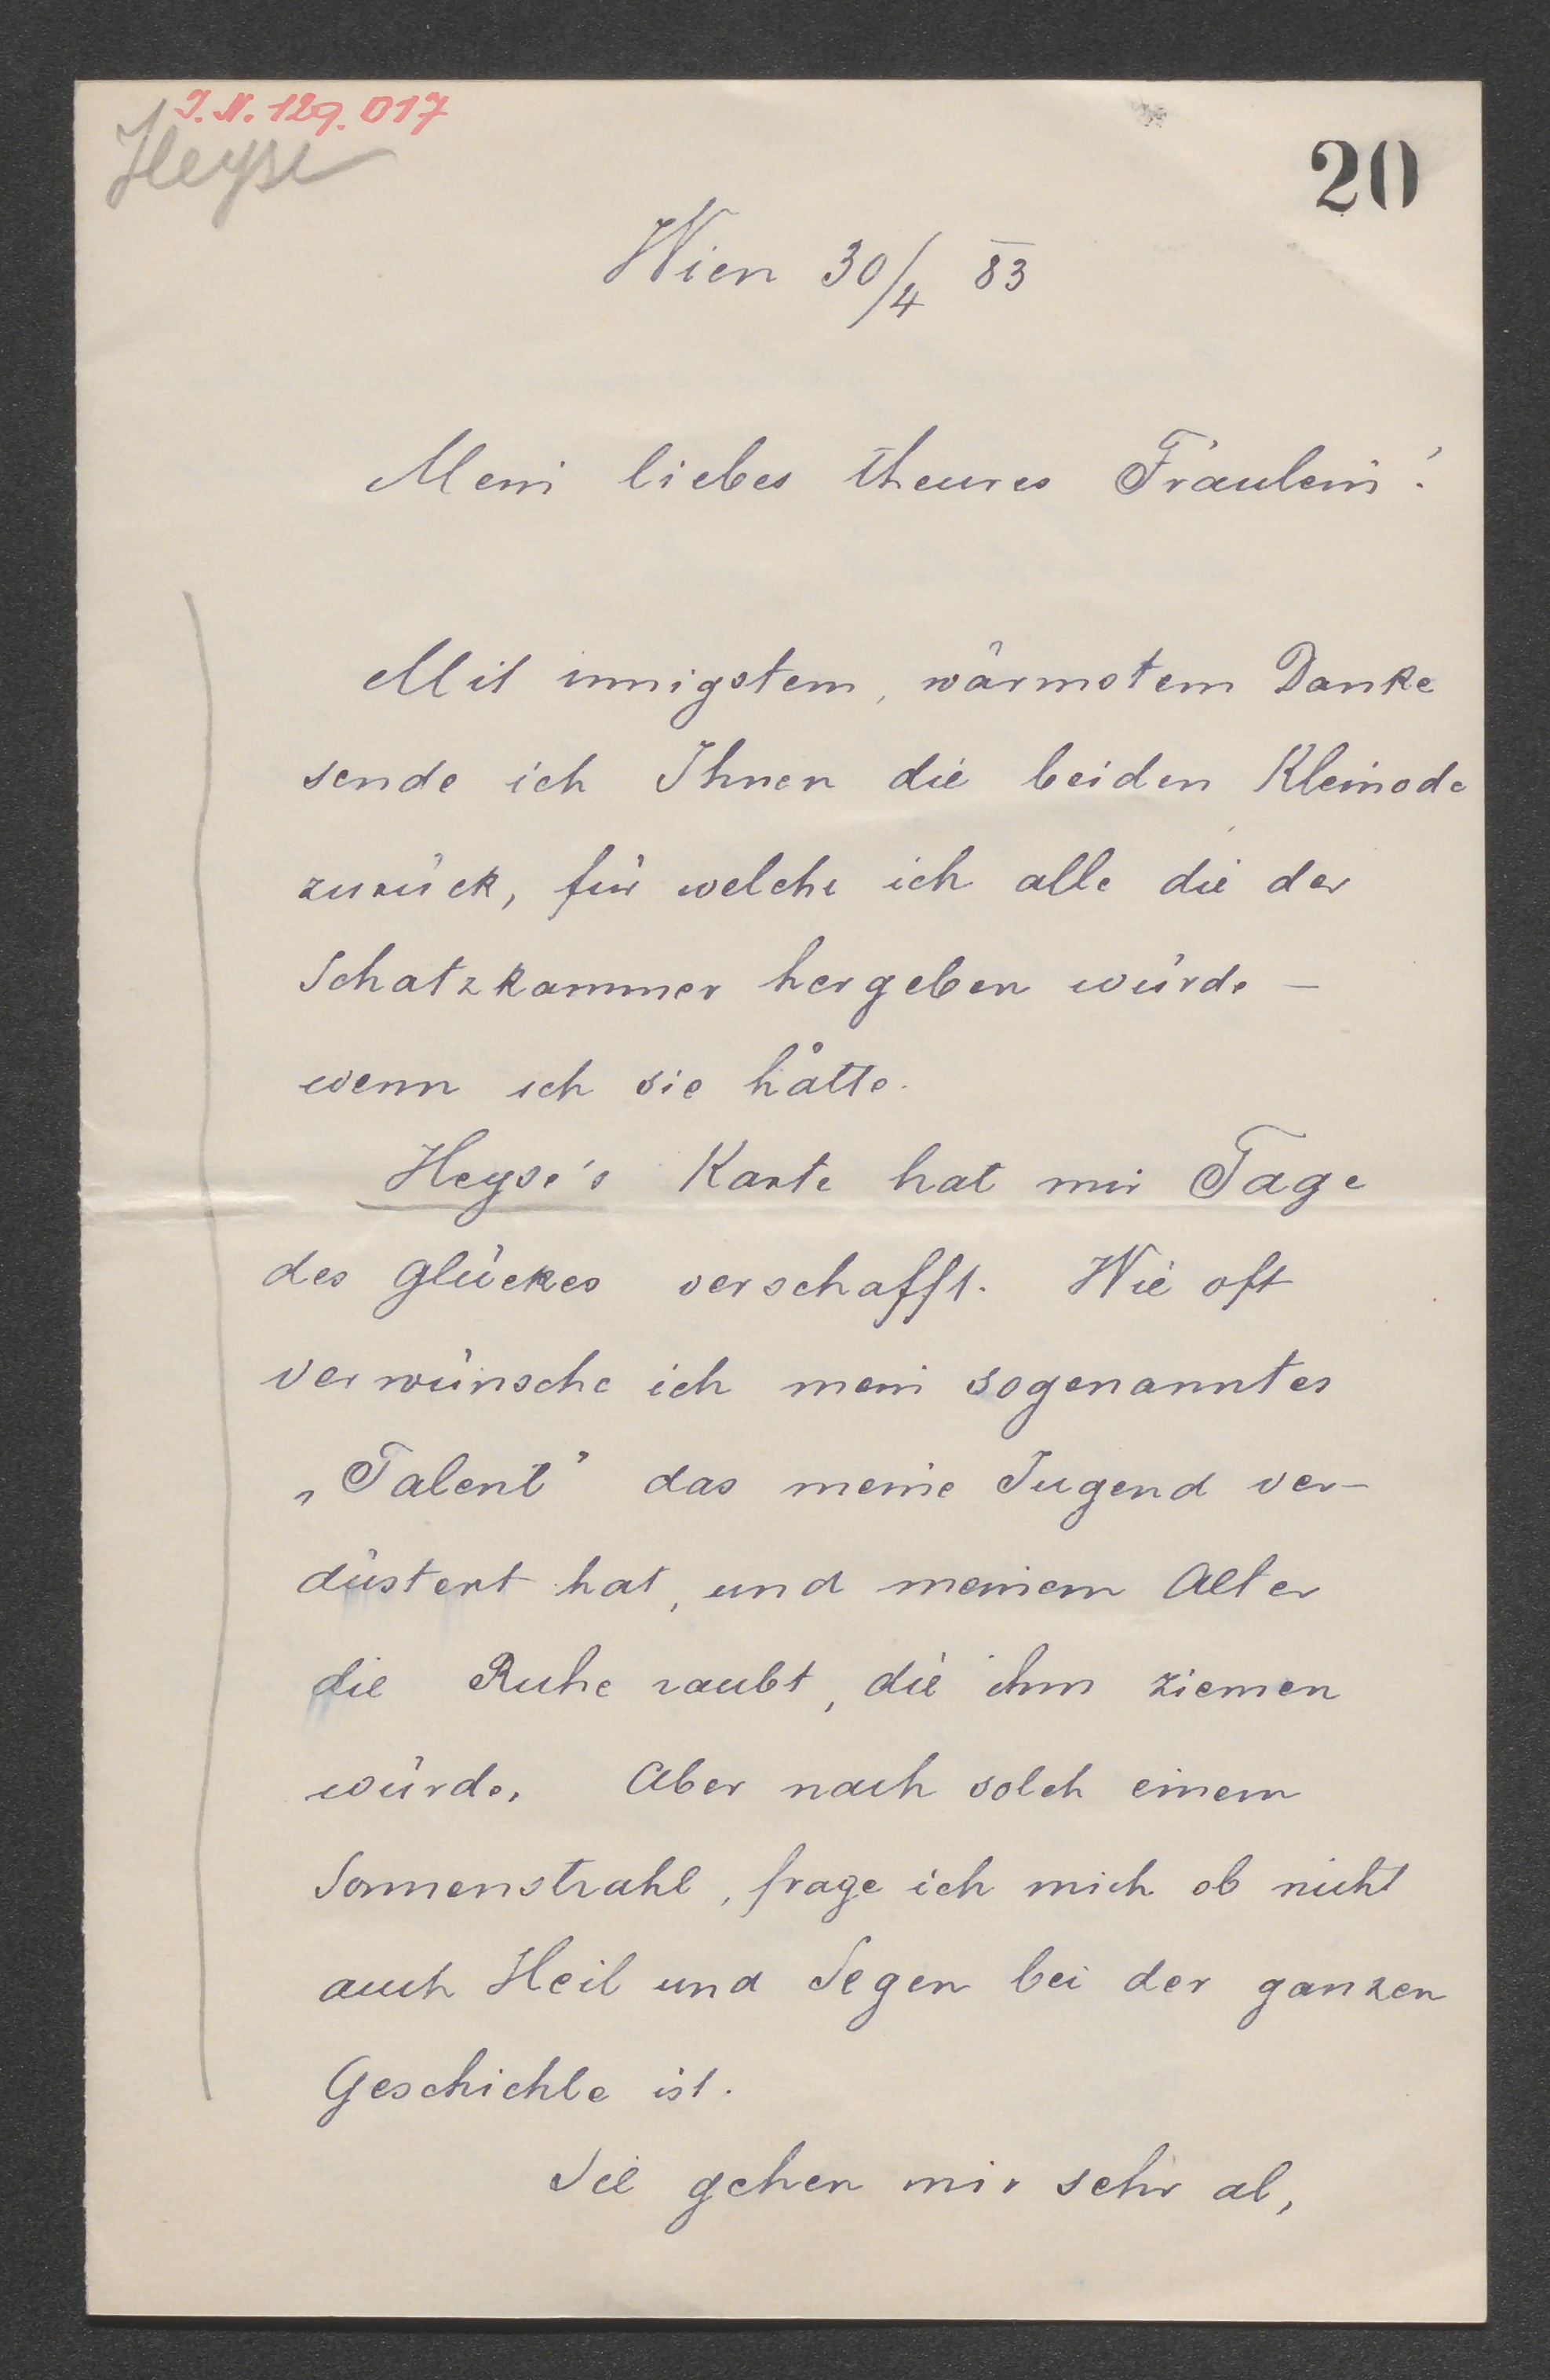 J.N. 129.017
Heyse
20
Wien 30/4 83
Mein liebes theures Fräulein!
Mit innigstem, wärmstem Danke
sende ich Ihnen die beiden Kleinode
zurück, für welche ich alle die der
Schatzkammer hergeben würde —
wenn ich sie hätte.
Heyse's Karte hat mir Tage
des Glückes verschafft. Wie oft
verwünsche ich mein sogenanntes
„Talent" das meine Jugend ver-
düstert hat, und meinem Alter
die Ruhe raubt, die ihm ziemen
würde. Aber nach solch einem
Sonnenstrahl, frage ich mich ob nicht
auch Heil und Segen bei der ganzen
Geschichte ist.
Sie gehen mir sehr ab,